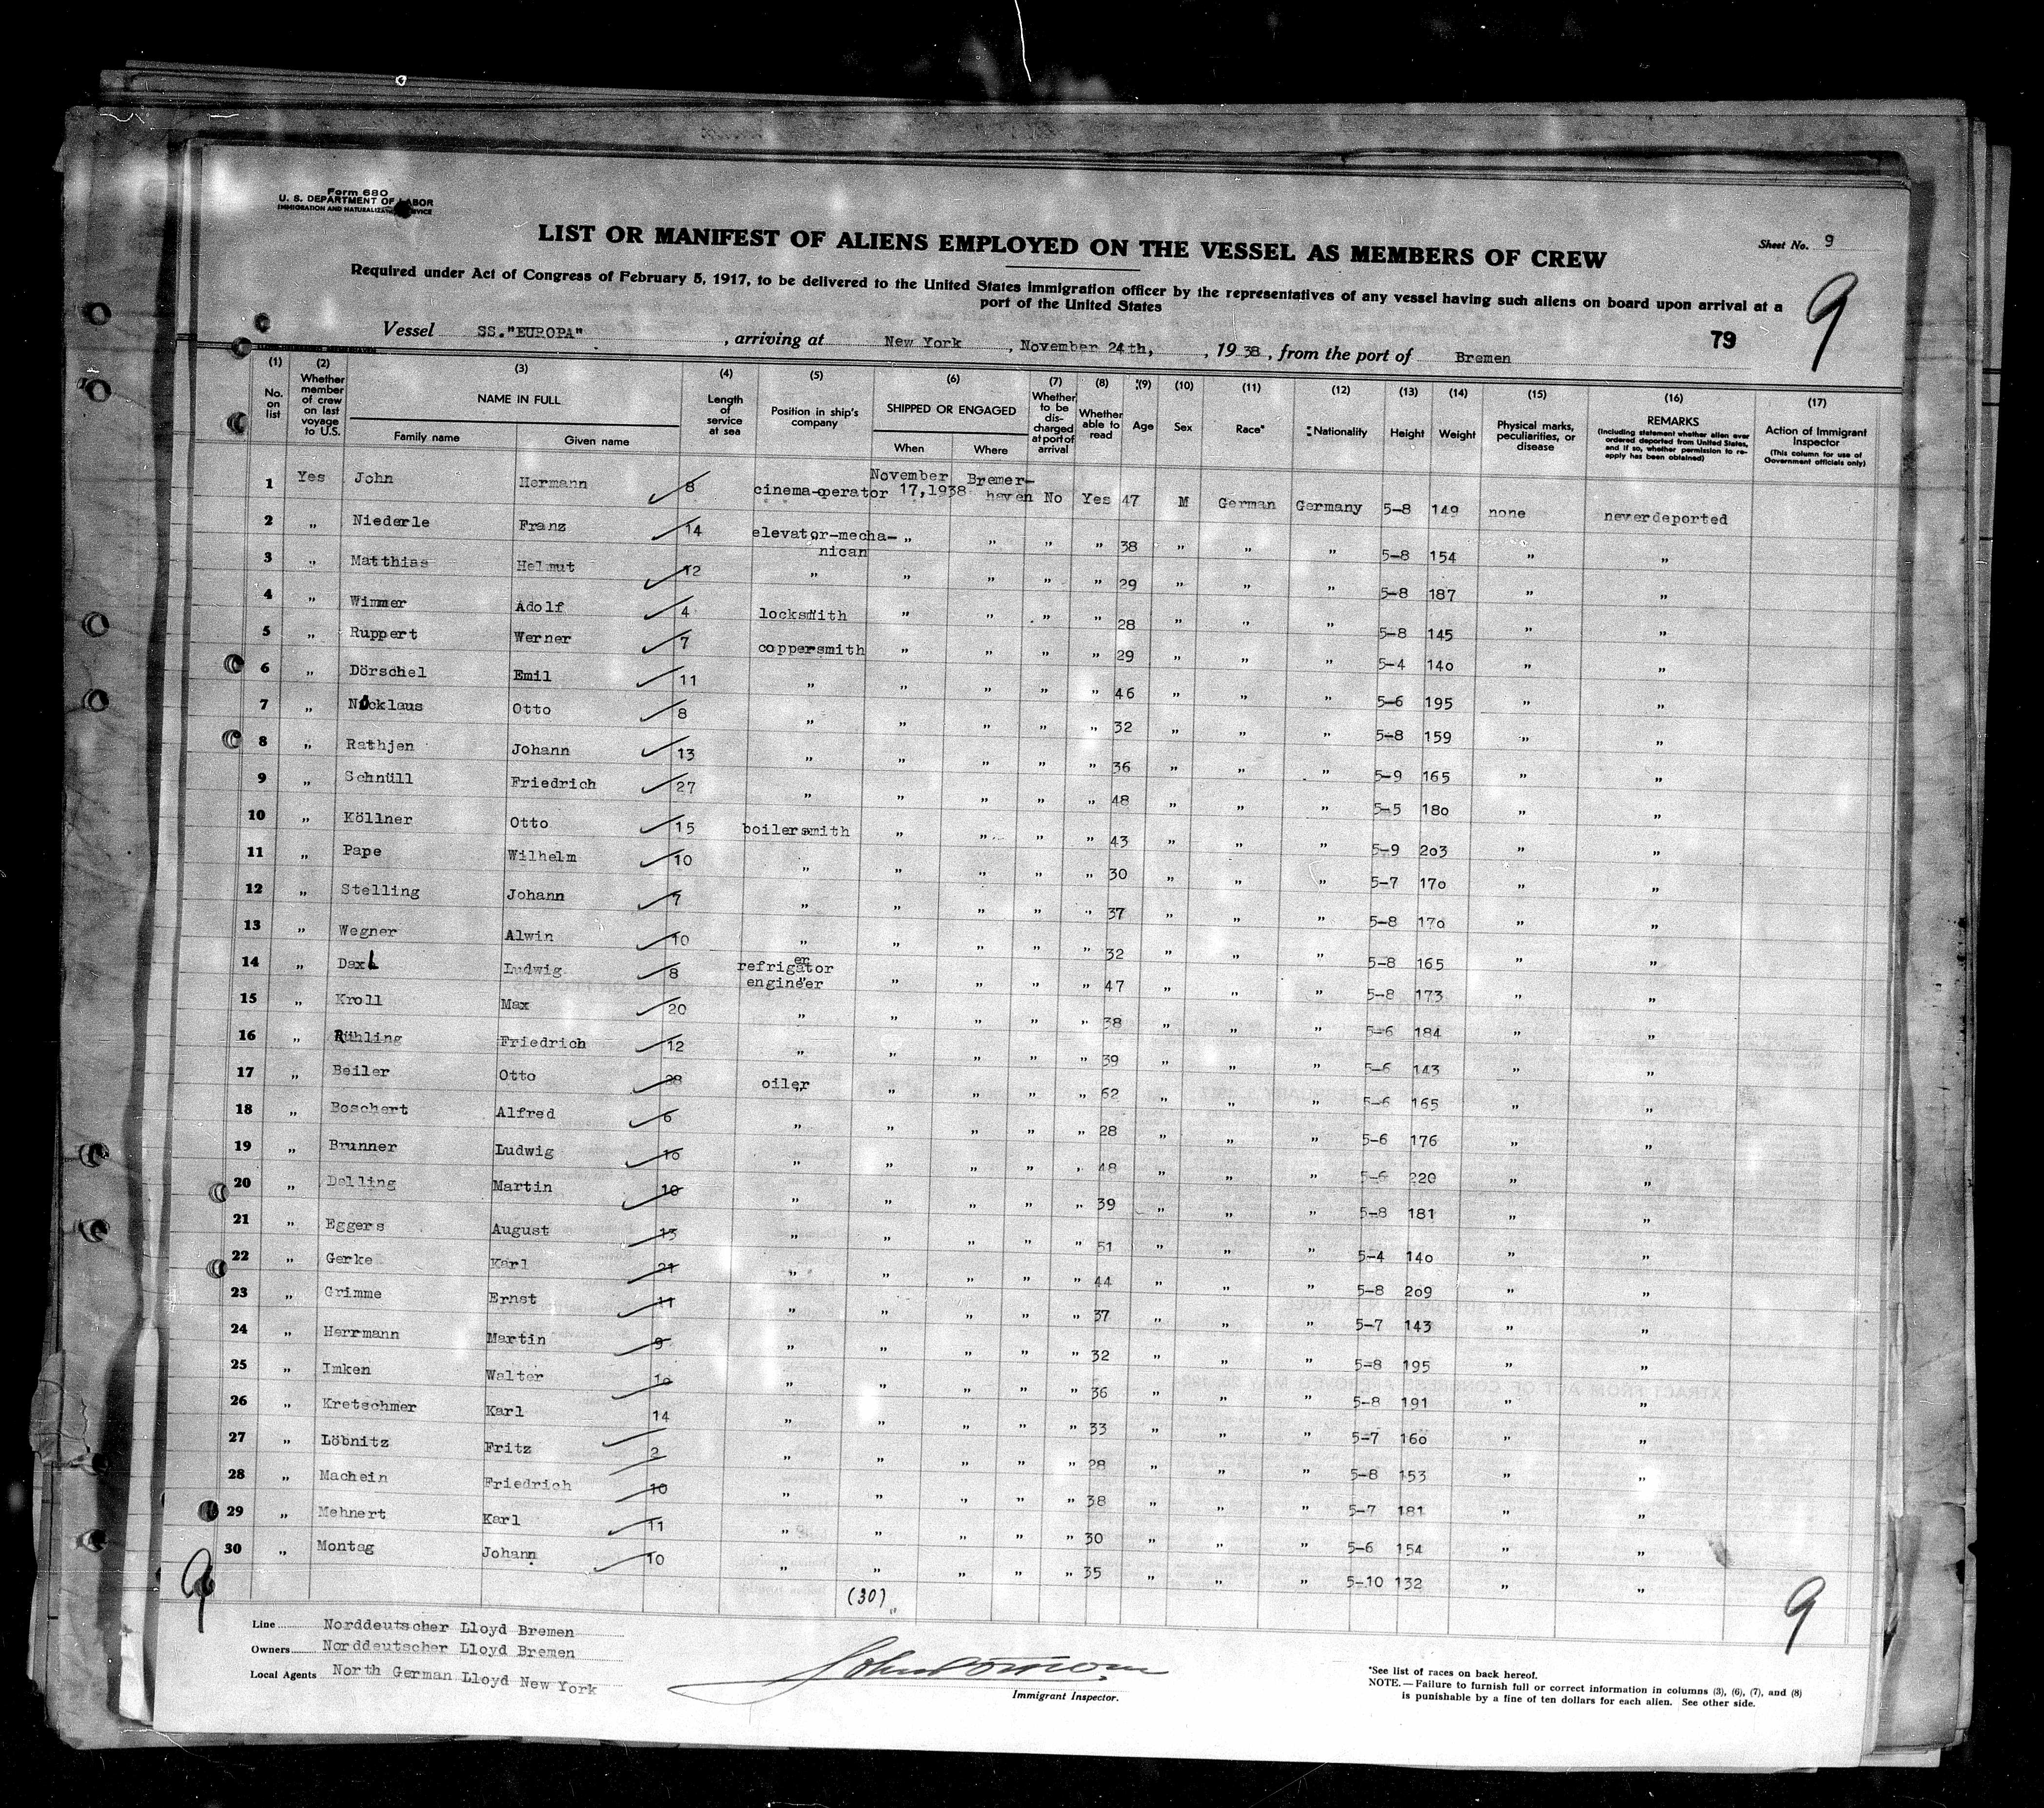 Form 680
U. S. DEPARTMENT OF LABOR
IMMIGRATION AND NATURALIZATION SERVICE
LIST OR MANIFEST OF ALIENS EMPLOYED ON THE VESSEL AS MEMBERS OF CREW
Sheet No. 9
9
Required under Act of Congress of February 5, 1917, to be delivered to the United States immigration officer by the representatives of any vessel having such aliens on board upon arrival at a
port of the United States
Vessel SS."EUROPA" , arriving at New York , November 24th, , 1938 , from the port of Bremen
79
(1) (2) (3) (4) (5) (6) (7) (8) (9) (10) (11) (12) (13) (14) (15) (16) (17)
No. on list
Whether member of crew on last voyage to U.S.
NAME IN FULL
Family name Given name
Length of service at sea
Position in ship's company
SHIPPED OR ENGAGED
When Where
Whether to be discharged at port of arrival
Whether able to read
Age
Sex
Race*
Nationality
Height
Weight
Physical marks, peculiarities, or disease
REMARKS
(Including statement whether alien ever ordered deported from United States, and if so, whether permission to reapply has been obtained)
Action of Immigrant Inspector
(This column for use of Government officials only)
1 Yes John Hermann 8 cinema-operator November 17,1938 Bremerhaven No Yes 47 M German Germany 5-8 149 none never deported
2 " Niederle Franz 14 elevator-mecha-nican " " " " 38 " " " 5-8 154 " "
3 " Matthias Helmut 12 " " " " " 29 " " " 5-8 187 " "
4 " Wimmer Adolf 4 locksmith " " " " 28 " " " 5-8 145 " "
5 " Ruppert Werner 7 coppersmith " " " " 29 " " " 5-4 140 " "
6 " Dörschel Emil 11 " " " " " 46 " " " 5-6 195 " "
7 " Nöcklaus Otto 8 " " " " " 32 " " " 5-8 159 " "
8 " Rathjen Johann 13 " " " " " 36 " " " 5-9 165 " "
9 " Schnüll Friedrich 27 " " " " " 48 " " " 5-5 180 " "
10 " Köllner Otto 15 boilersmith " " " " 43 " " " 5-9 203 " "
11 " Pape Wilhelm 10 " " " " " 30 " " " 5-7 170 " "
12 " Stelling Johann 7 " " " " " 37 " " " 5-8 170 " "
13 " Wegner Alwin 10 " " " " " 32 " " " 5-8 165 " "
14 " Daxl Ludwig 8 refrigerator engineer " " " " 47 " " " 5-8 173 " "
15 " Kroll Max 20 " " " " " 38 " " " 5-6 184 " "
16 " Rühling Friedrich 12 " " " " " 39 " " " 5-6 143 " "
17 " Beiler Otto 28 oiler " " " " 62 " " " 5-6 165 " "
18 " Boschert Alfred 6 " " " " " 28 " " " 5-6 176 " "
19 " Brunner Ludwig 16 " " " " " 48 " " " 5-6 220 " "
20 " Delling Martin 10 " " " " " 39 " " " 5-8 181 " "
21 " Eggers August 13 " " " " " 51 " " " 5-4 140 " "
22 " Gerke Karl 21 " " " " " 44 " " " 5-8 209 " "
23 " Grimme Ernst 11 " " " " " 37 " " " 5-7 143 " "
24 " Herrmann Martin 9 " " " " " 32 " " " 5-8 195 " "
25 " Imken Walter 10 " " " " " 36 " " " 5-8 191 " "
26 " Kretschmer Karl 14 " " " " " 33 " " " 5-7 160 " "
27 " Löbnitz Fritz 2 " " " " " 28 " " " 5-8 153 " "
28 " Machein Friedrich 10 " " " " " 38 " " " 5-7 181 " "
29 " Mehnert Karl 11 " " " " " 30 " " " 5-6 154 " "
30 " Montag Johann 10 " " " " " 35 " " " 5-10 132 " "
(30) "
9
9
Line Norddeutscher Lloyd Bremen
Owners Norddeutscher Lloyd Bremen
Local Agents North German Lloyd New York
Immigrant Inspector.
*See list of races on back hereof.
NOTE.—Failure to furnish full or correct information in columns (3), (6), (7), and (8)
is punishable by a fine of ten dollars for each alien. See other side.